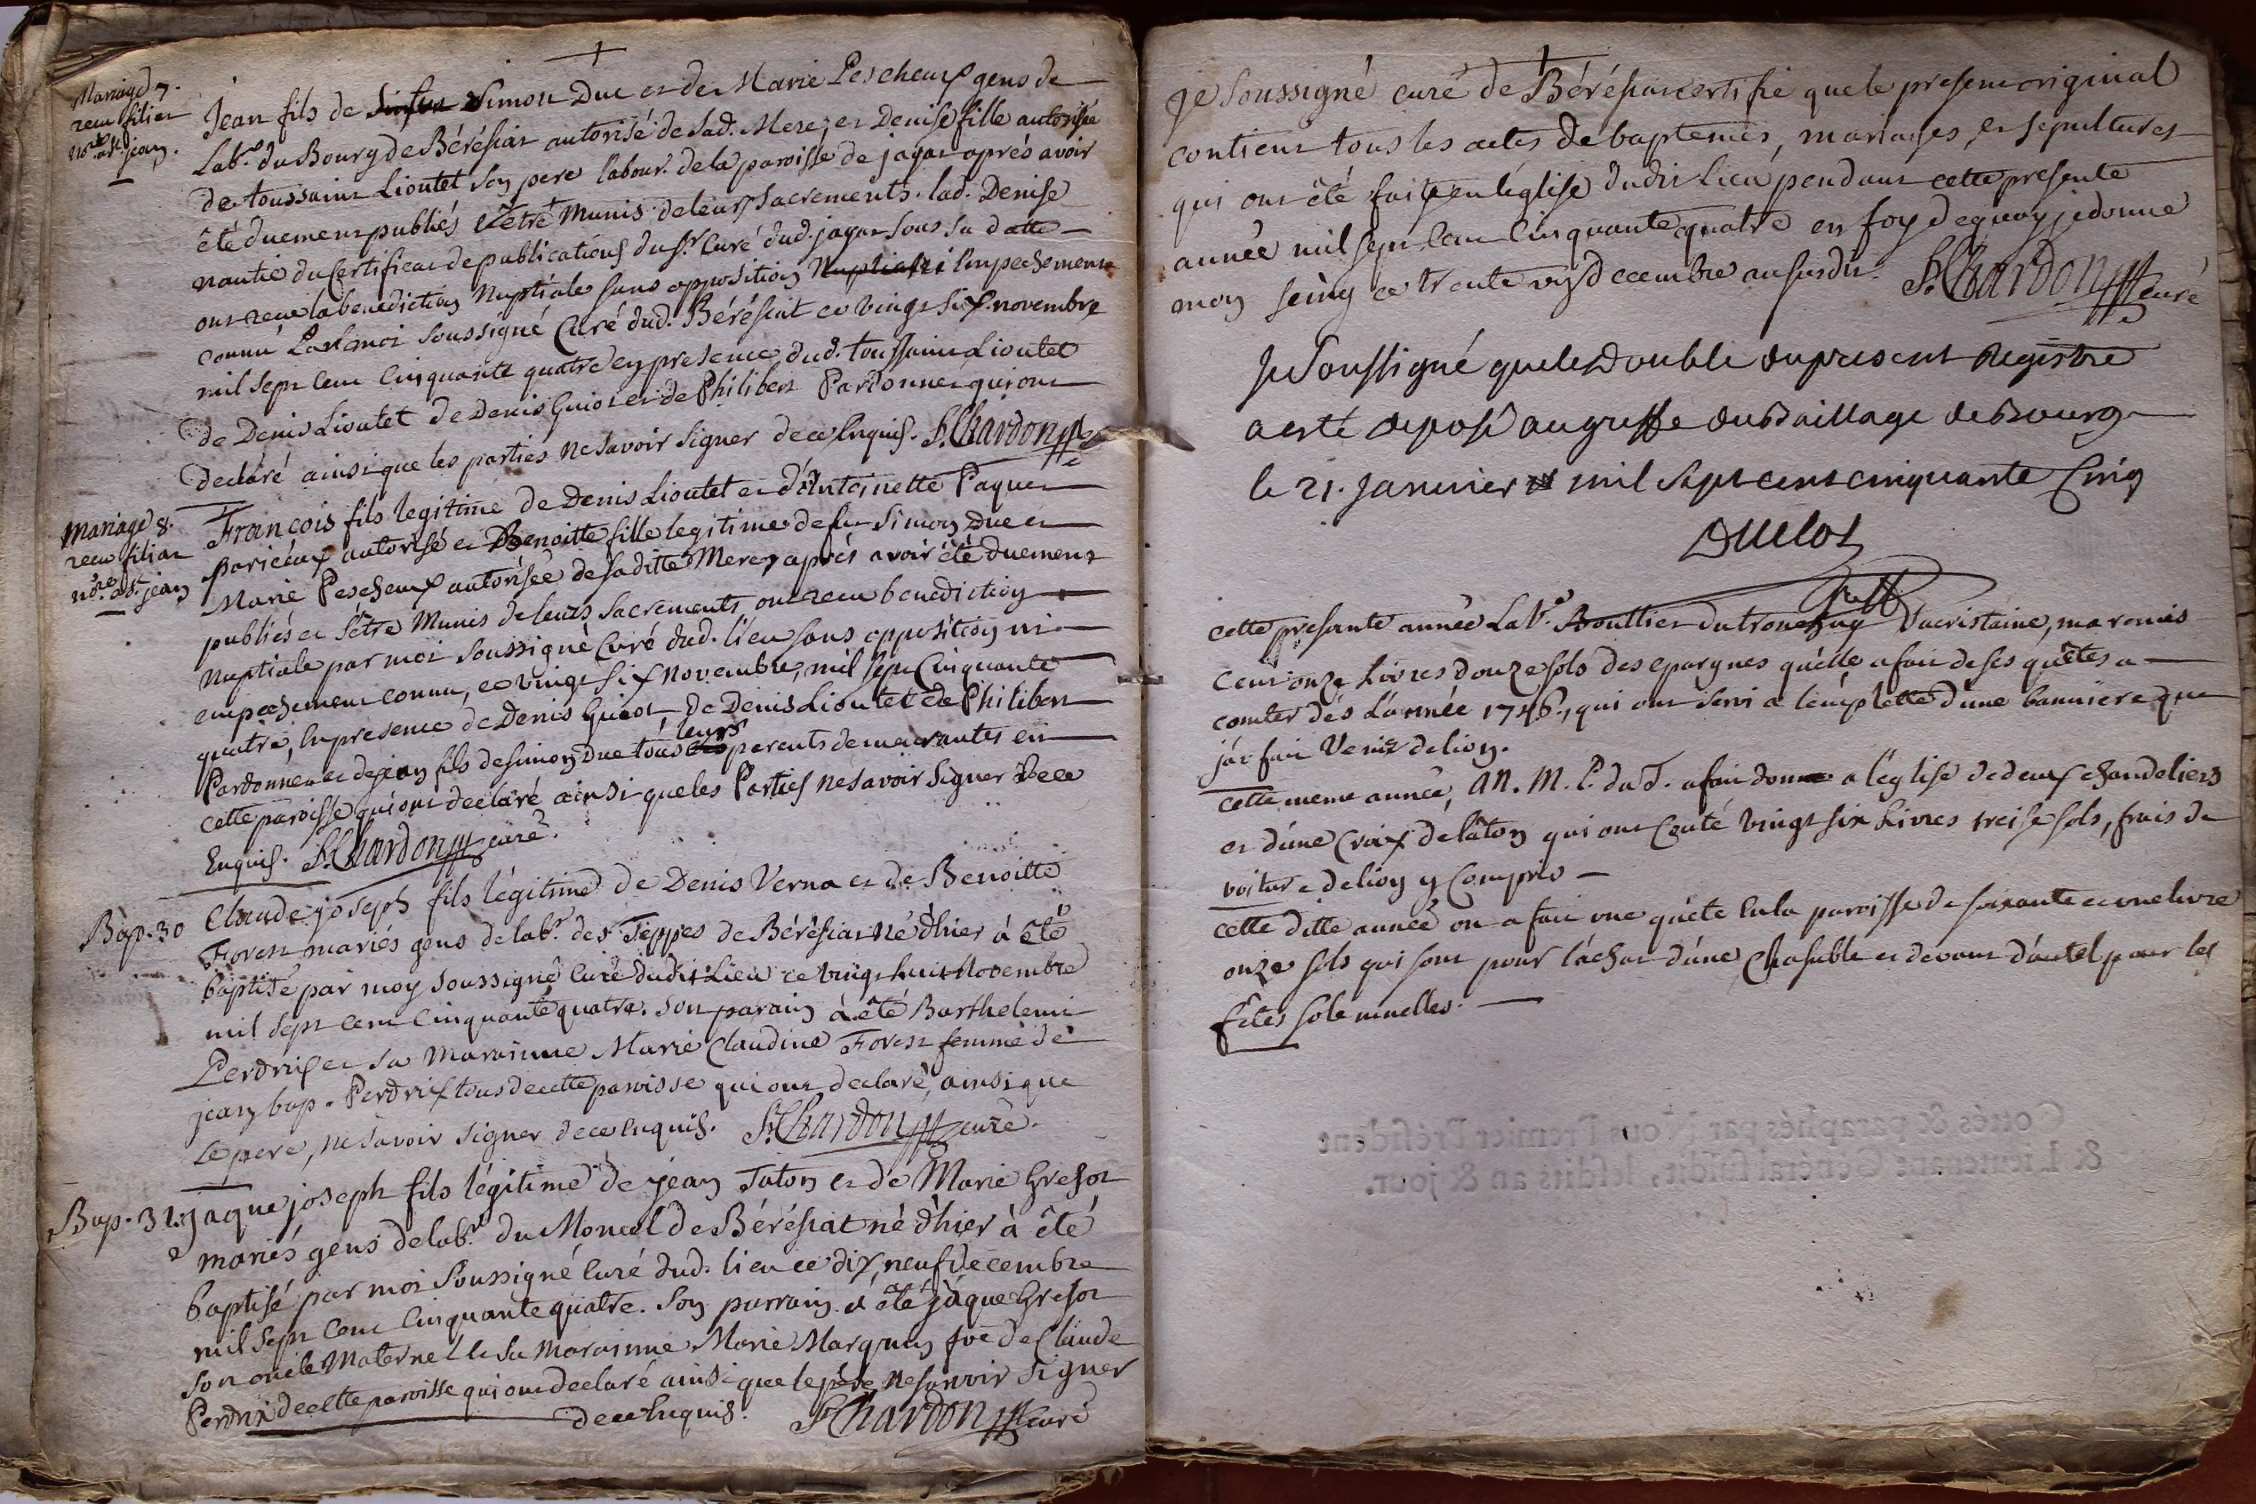 Mariage 7.
receu filiat
no.re a St. jean.
Jean fils de Simon Duc et de Marie Pescheux gens de
Lab.r du Bourg de Béréziat autorisé de Sad. Mere, et Denise fille autorisée
de toussaint Lioutet son pere labour. de la paroisse de jayat aprés avoir
été duement publiés et être Munis de leurs Sacrements. lad. Denise
nantie du Certificat de publications du Sr. Curé dud. jayat sous sa datte
ont receu la benediction Nuptiale sans opposition ni Empechement
connu Par moi soussigné Curé dud. Béréziat ce vingt six novembre
mil sept cent cinquante quatre en presence dud. toussaint Lioutet
de Denis Lioutet de Denis Guiot et de Philibert Pardonnet qui ont
declaré ainsi que les parties ne savoir signer de ce Enquis. P. Chardon
Mariage 8.
receu filiat
no.re a St. jean
François fils legitime de Denis Lioutet et d'Antoinette Paquet
parieux autorisé et Benoitte fille legitime de feu Simon Duc et
Marie Pescheux autorisée de saditte Mere, aprés avoir été duement
publiés et s'être Munis de leurs Sacrements ont receu benediction
Nuptiale par moi soussigné Curé dud. lieu sans opposition ni
empechement connu, ce vingt six novembre, mil sept Cinquante
quatre, En presence de Denis Guiot, de Denis Lioutet de Philibert
Pardonnet et de jean fils de simon Duc tous leurs parents demeurantes en
cette paroisse qui ont declaré ainsi que les Parties ne savoir signer de ce
Enquis. P. Chardon curé.
Bap. 30
Claude joseph fils légitime de Denis Verna et de Benoitte
Forest mariés gens de lab.r des Teppes de Béréziat né d'hier à été
baptisé par moy soussigné Curé dudit Lieu ce vingt huit Novembre
mil sept cent Cinquante quatre. son parain à été Barthelemi
Perdrix et sa Maraine Marie Claudine Forest femme de
jean bap. Perdrix tous de cette paroisse qui ont declaré, ainsi que
Le pere, ne savoir signer de ce Enquis. P. Chardon curé.
Bap. 31.
jaque joseph fils légitime de jean Taton et de Marie Gresot
mariés gens de lab.r du Moncel de Béréziat né d'hier à été
baptisé par moi soussigné Curé dud. lieu ce dix, neuf decembre
mil sept cent Cinquante quatre. Son parrain à été jaque Gresot
son oncle Maternel et sa Maraine Marie Marguin fe. de Claude
Perdrix de cette paroisse qui ont declaré ainsi que le père, ne savoir signer
de ce Enquis. P. Chardon curé
Je Soussigné curé de Béréziat certifie que le present original
contient tous les actes de baptemes, mariages, et sepultures
qui ont été faits en l'église dudit Lieu pendant cette presente
année mil sept cent Cinquante quatre en foy de quoy je donne
mon seing ce trente un decembre an susdit. P. Chardon curé
Je Soussigné que le Double du present Registre
a esté deposé au greffe du Bailliage de Bourg
le 21. Janvier mil sept cent cinquante Cinq
Duclos
cette presante année La Ve. Bouttier du tronchay Sacristaine, m'a remis
cent onze Livres douze sols des epargnes qu'elle a fait de ses quêtes a
comter dés L'année 1746., qui ont servi a l'emplette d'une banniere que
j'ai fait Venir de lion.
cette meme année, M. P. duT. a fait don a l'église de deux chandeliers
et d'une Croix de lâton qui ont Couté Vingt six Livres treise sols, frais de
voiture de lion y Compris
cette ditte année on a fait une quête En la paroisse de soixante et une livre
onze sols qui sont pour l'achat d'une Chasuble et devant d'autel pour les
fêtes solemnelles.
Cottés & paraphés par Nous Premier Président
& Lieutenant Général susdit, lesdits an & jour.